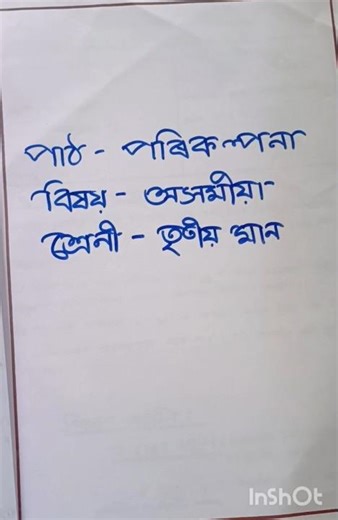 পাঠ - পৰিকল্পনা
বিষয় - অসমীয়া
শ্ৰেনী - তৃতীয় মান
InShOt